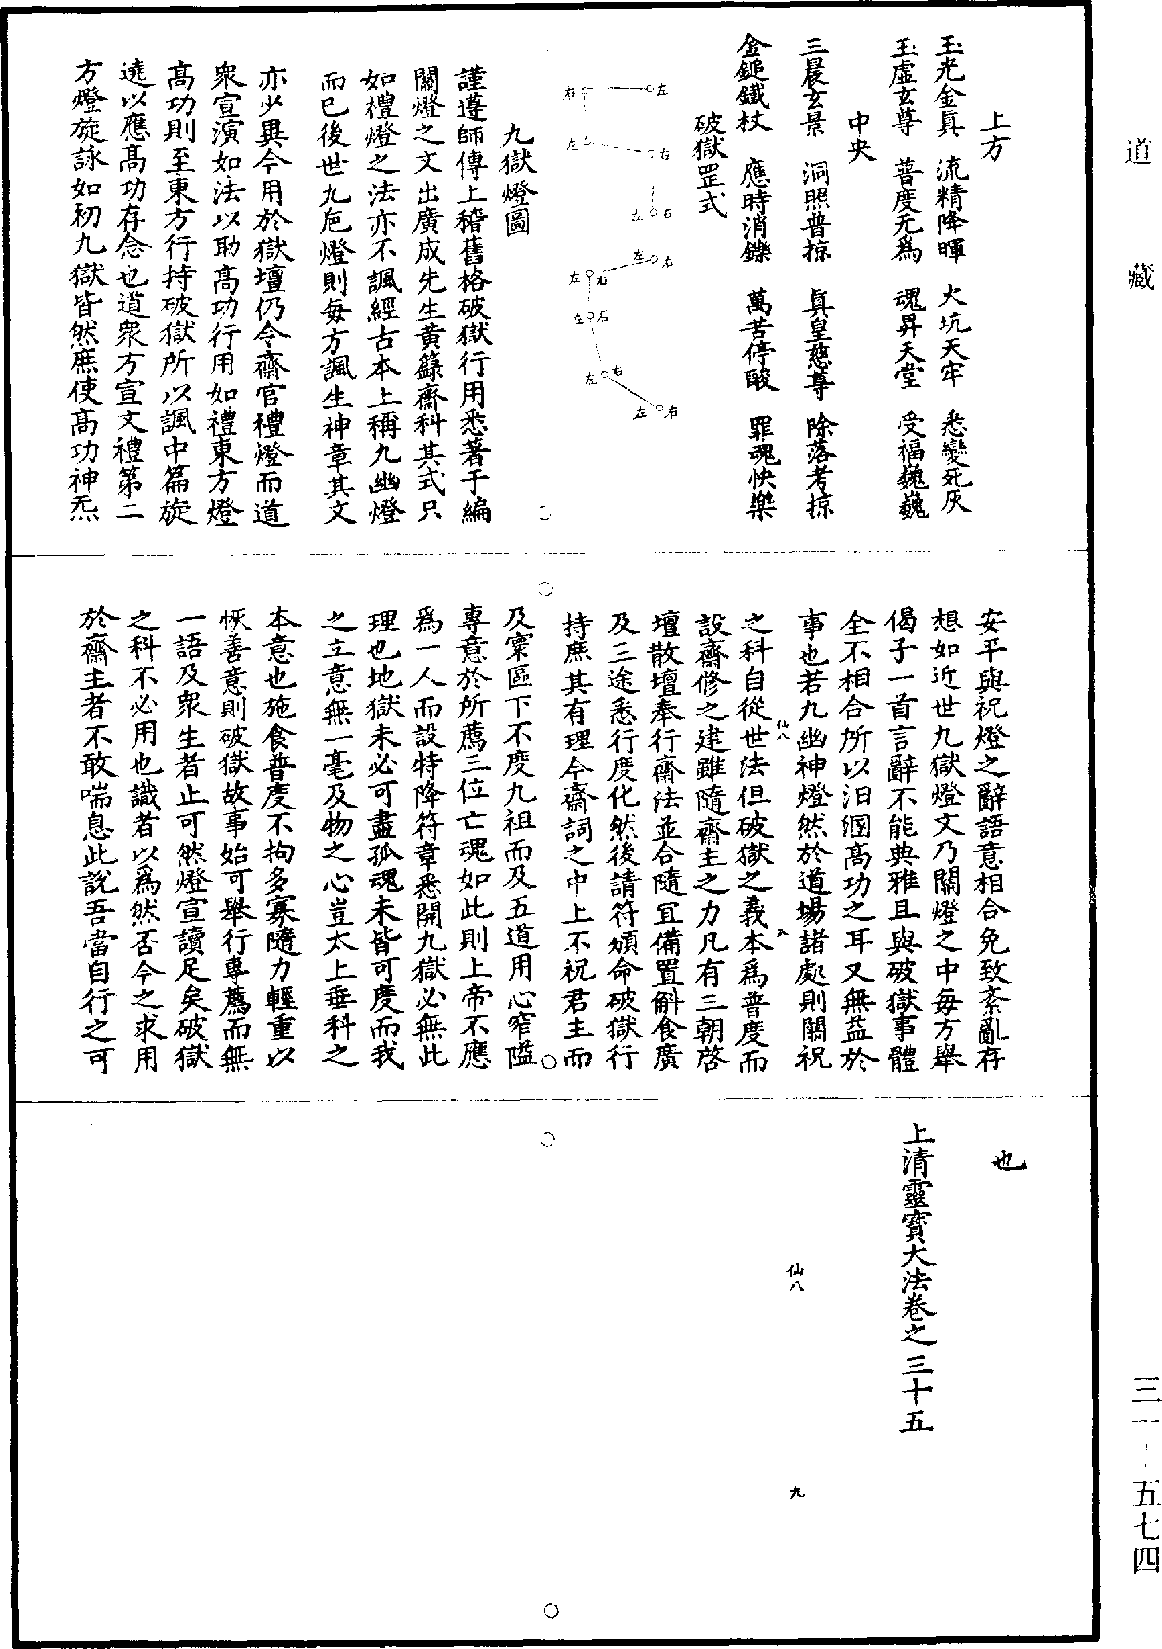 道藏
上方
玉光金真　流精降暉　火坑天牢　悉變死灰
玉虛玄尊　普度无為　魂昇天堂　受福巍巍
中央
三晨玄景　洞照普掠　真皇慈尊　除落考掠
金鎚鐵杖　應時消鑠　萬苦停酸　罪魂快樂
破獄罡式
左 右
右 左
左 右
左 右
左 右
左 右
左 右
左 右
九獄燈圖
謹遵師傳上稽舊格破獄行用悉著于編
關燈之文出廣成先生黃籙齋科其式只
如禮燈之法亦不諷經古本上稱九幽燈
而已後世九巵燈則每方諷生神章其文
亦少異今用於獄壇仍令齋官禮燈而道
眾宣演如法以助高功行用如禮東方燈
高功則至東方行持破獄所以諷中篇旋
遶以應高功存念也道眾方宣文禮第二
方燈旋詠如初九獄皆然庶使高功神炁
安平與祝燈之辭語意相合免致紊亂存
想如近世九獄燈文乃關燈之中每方舉
偈子一首言辭不能典雅且與破獄事體
全不相合所以汨溷高功之耳又無益於
事也若九幽神燈然於道場諸處則關祝
仙八
八
之科自從世法但破獄之義本為普度而
設齋修之建雖隨齋主之力凡有三朝啓
壇散壇奉行齋法並合隨宜備置斛食廣
及三途悉行度化然後請符頒命破獄行
持庶其有理今齋詞之中上不祝君主而
及寰區下不度九祖而及五道用心窄隘
專意於所薦三位亡魂如此則上帝不應
為一人而設特降符章悉開九獄必無此
理也地獄未必可盡孤魂未皆可度而我
之立意無一毫及物之心豈太上垂科之
本意也施食普度不拘多寡隨力輕重以
恢善意則破獄故事始可舉行專薦而無
一語及眾生者止可然燈宣讀足矣破獄
之科不必用也識者以為然否今之求用
於齋主者不敢喘息此說吾當自行之可
也
上清靈寶大法卷之三十五
仙八
九
三一－五七四